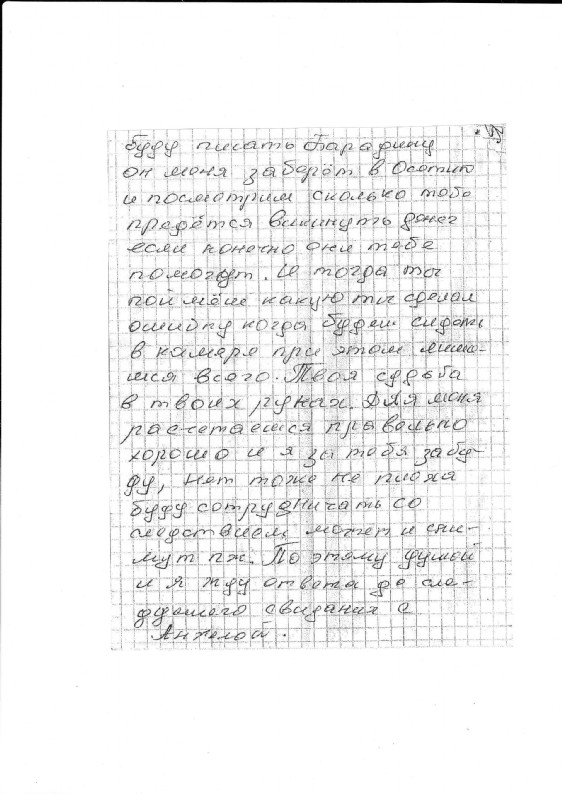 буду писать Парафину
он меня заберёт в Осетию
и посмотрим сколько тебе
предётся викинуть денег
если конечно они тебе
помогут. И тогда ты
поймёш какую ты сделал
ошибку когда будеш сидеть
в камере при этом лиши-
лся всего. Твоя судьба
в твоих руках. Для меня
расчетаешся правельно
хорошо и я за тебя забу-
ду, нет тоже не плоха
буду сотрудничать со
следствием может и сни-
мут пж. По этому думай
и я жду ответа до сле-
дующего свидания с
Анжелой.